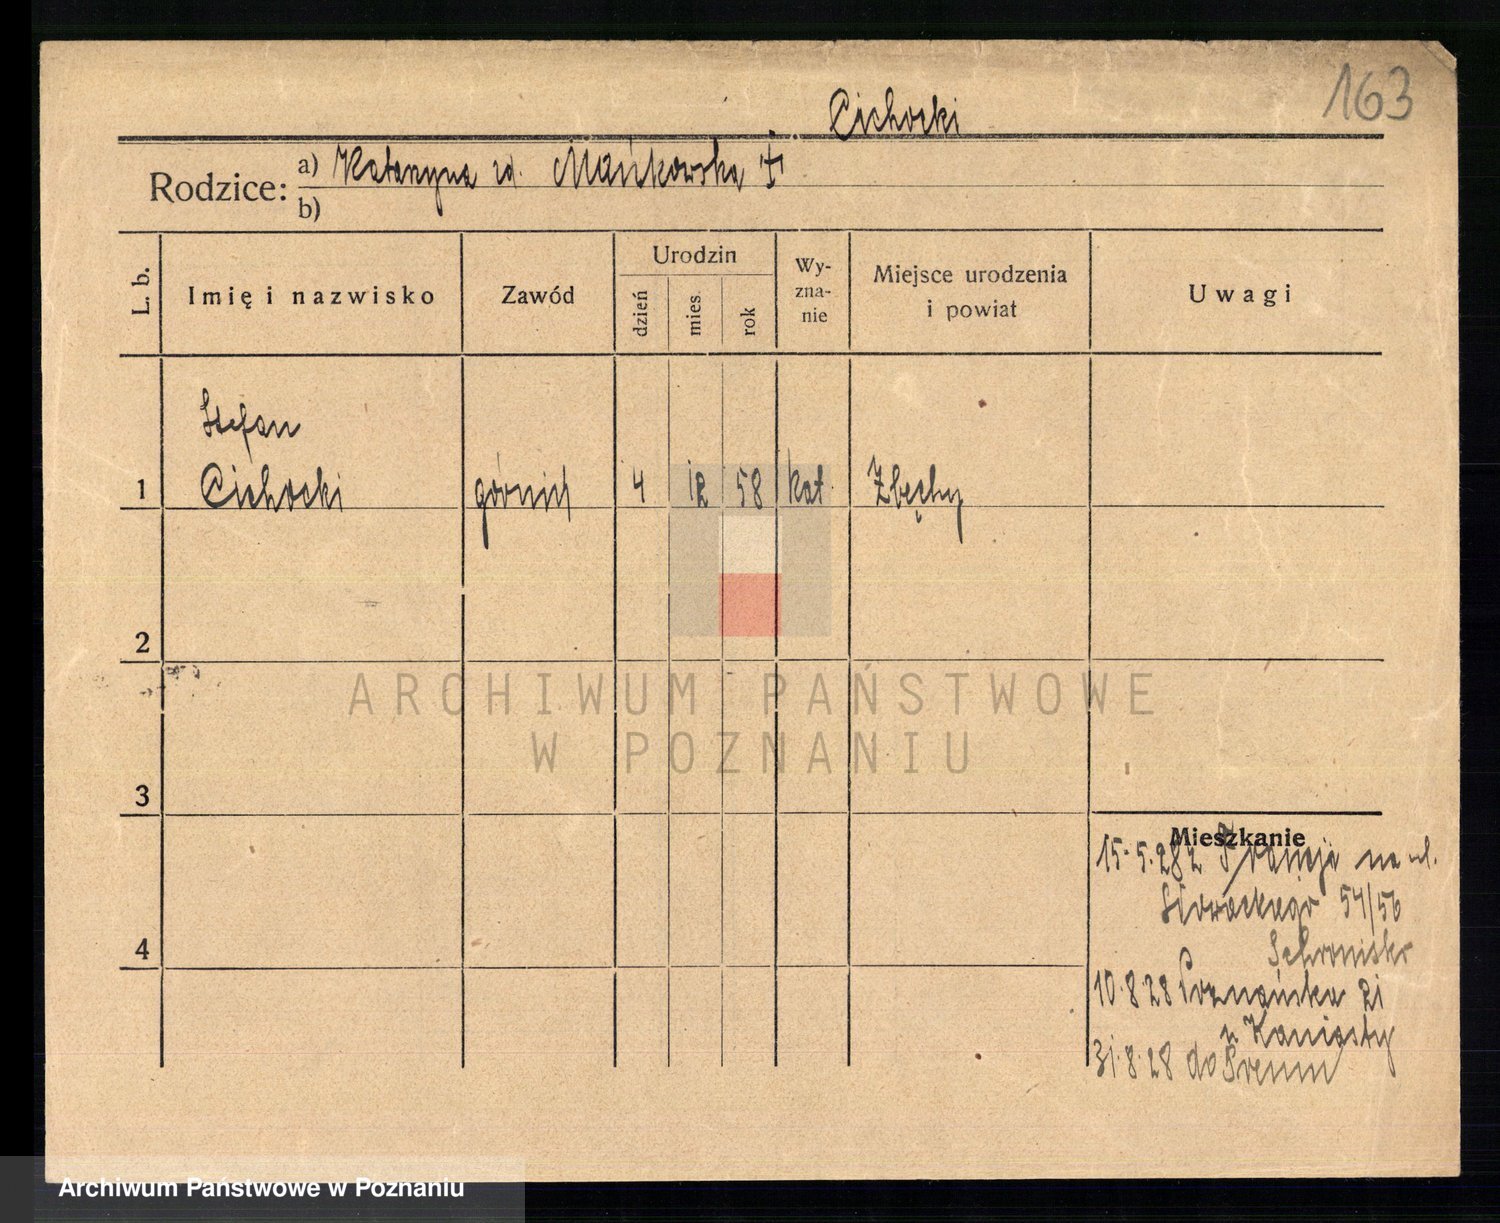 163
Cichocki
Rodzice: a) Katarzyna zd. Mańkowska +
b)
L. b. Imię i nazwisko Zawód Urodzin dzień mies. rok Wy-zna-nie Miejsce urodzenia i powiat Uwagi
Stefan
1 Cichocki górnik 4 12 58 kat. Zbęchy
2
ARCHIWUM PAŃSTWOWE
W POZNANIU
3
Mieszkanie
15.5.28 z Francji na ul.
Słowackiego 54/56
Schronisko
10.8.28 Poznańska 21
u Kaniasty
31.8.28 do Śremu
4
Archiwum Państwowe w Poznaniu